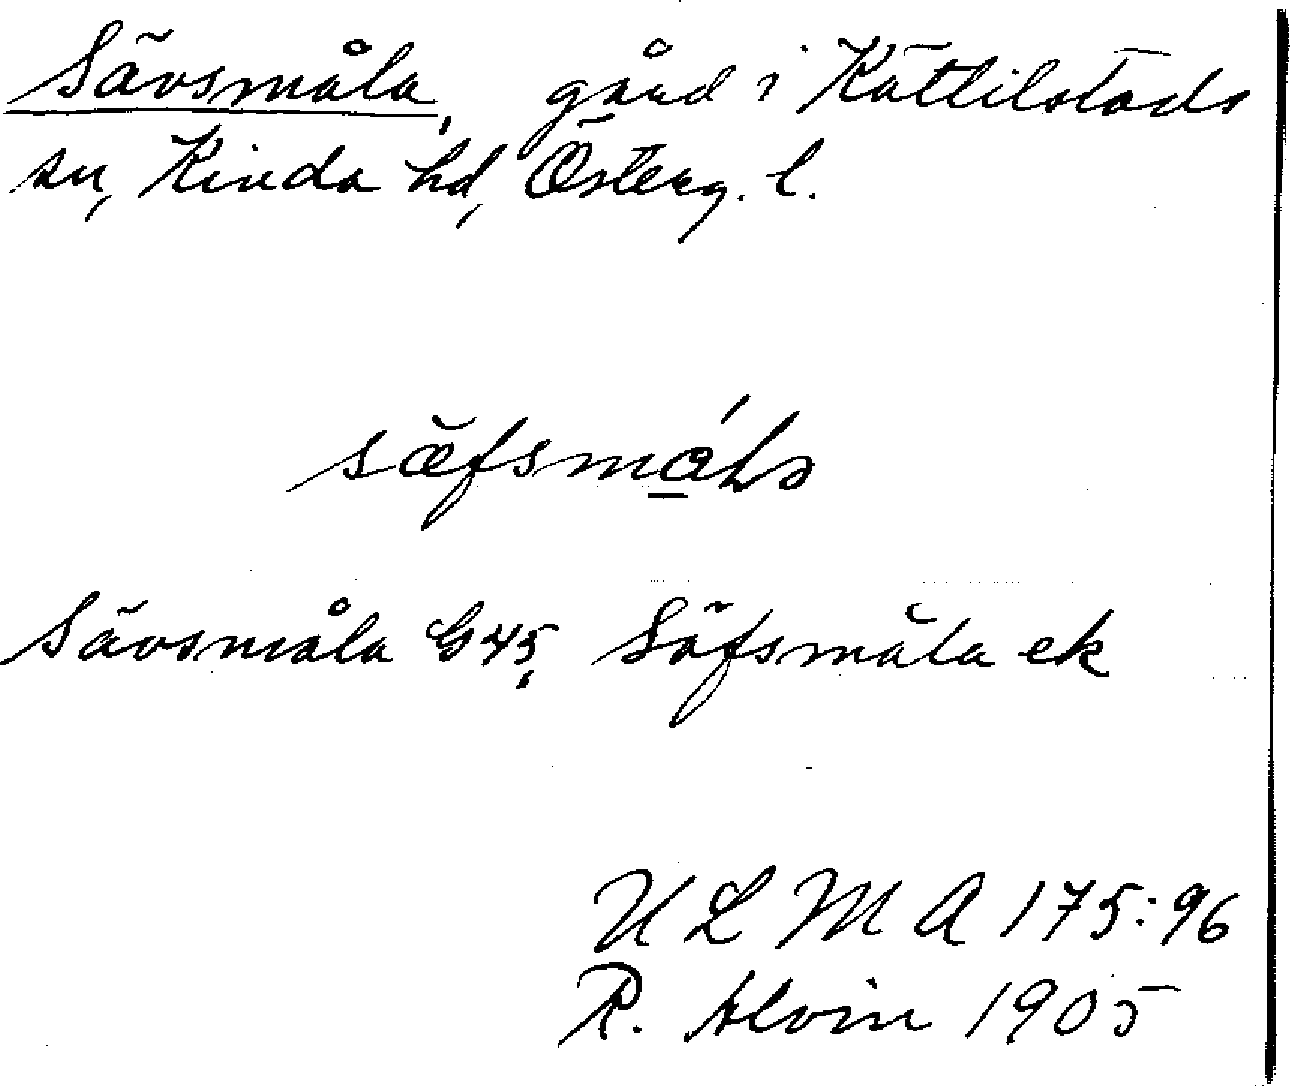 Sävsmåla, gård i Kättilstads
sn, Kinda hd, Österg. l.
säfsmåla
Sävsmåla G45, Säfsmåla ek
ULMA 175:96
R. Alvin 1905